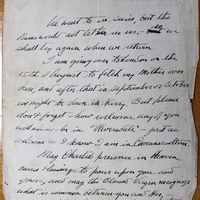 We went to see Susie, but the
not let me see,
shall try again when we return
I am going over to London on the
15th August to fetch my Mother over
here, and after that in September or October
we might be down in Kerry. But please
don't forget how welcome any of you
will always be in "Riversdale" – just as
welcome as I know I am in Caherconlish
May Charlie's presence in Heaven
cause blessings to pour upon you, and
yours, and may the Blessed Virgin recognise
what is common between you and Her,